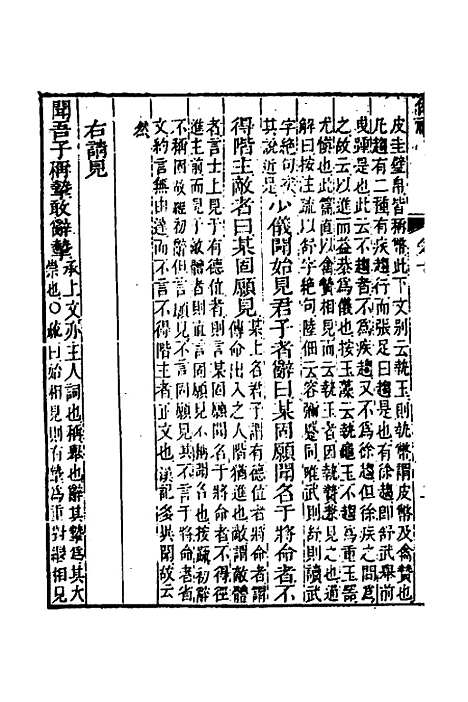 皮圭璧帛皆稱幣此下文別云執玉則執幣謂皮幣及禽贄也
凡趨有二種有疾趨行而張足曰趨是也有徐趨卽武舉前
曳踵是也此云不趨者不爲疾趨又不爲徐趨但徐疾之間爲
之故云以進而益恭爲儀也按玉藻云執龜玉不趨爲重玉器
尤愼也此篇直云以禽贄相見而云不趨者因執贄類見之也通
解曰按注疏以舒字絶句陸佃云容彌蹙同唯武則舒則讀武
字絶句
其說近是少儀聞始見君子者辭曰某固願聞名于將命者不
得階主敵者曰某固願見某上名君子謂有德位者將命者謂
傳命出入之人階猶進也敵謂敵體
者言士上見于有德位者則言某固願聞名于將命者不得徑
進主前而見于敵體者則直言某固願見不稱名也按疏初辭
不稱固故經初辭但言願見不言固願見其不言于將命者
文約言無由達而不得階主者正文也漢記多異聞故云
然
右請見
聞吾子稱摯敢辭摯承上文亦主人詞也稱舉也辭其摯爲其大
崇也〇疏曰始相見則有摯爲重對相見